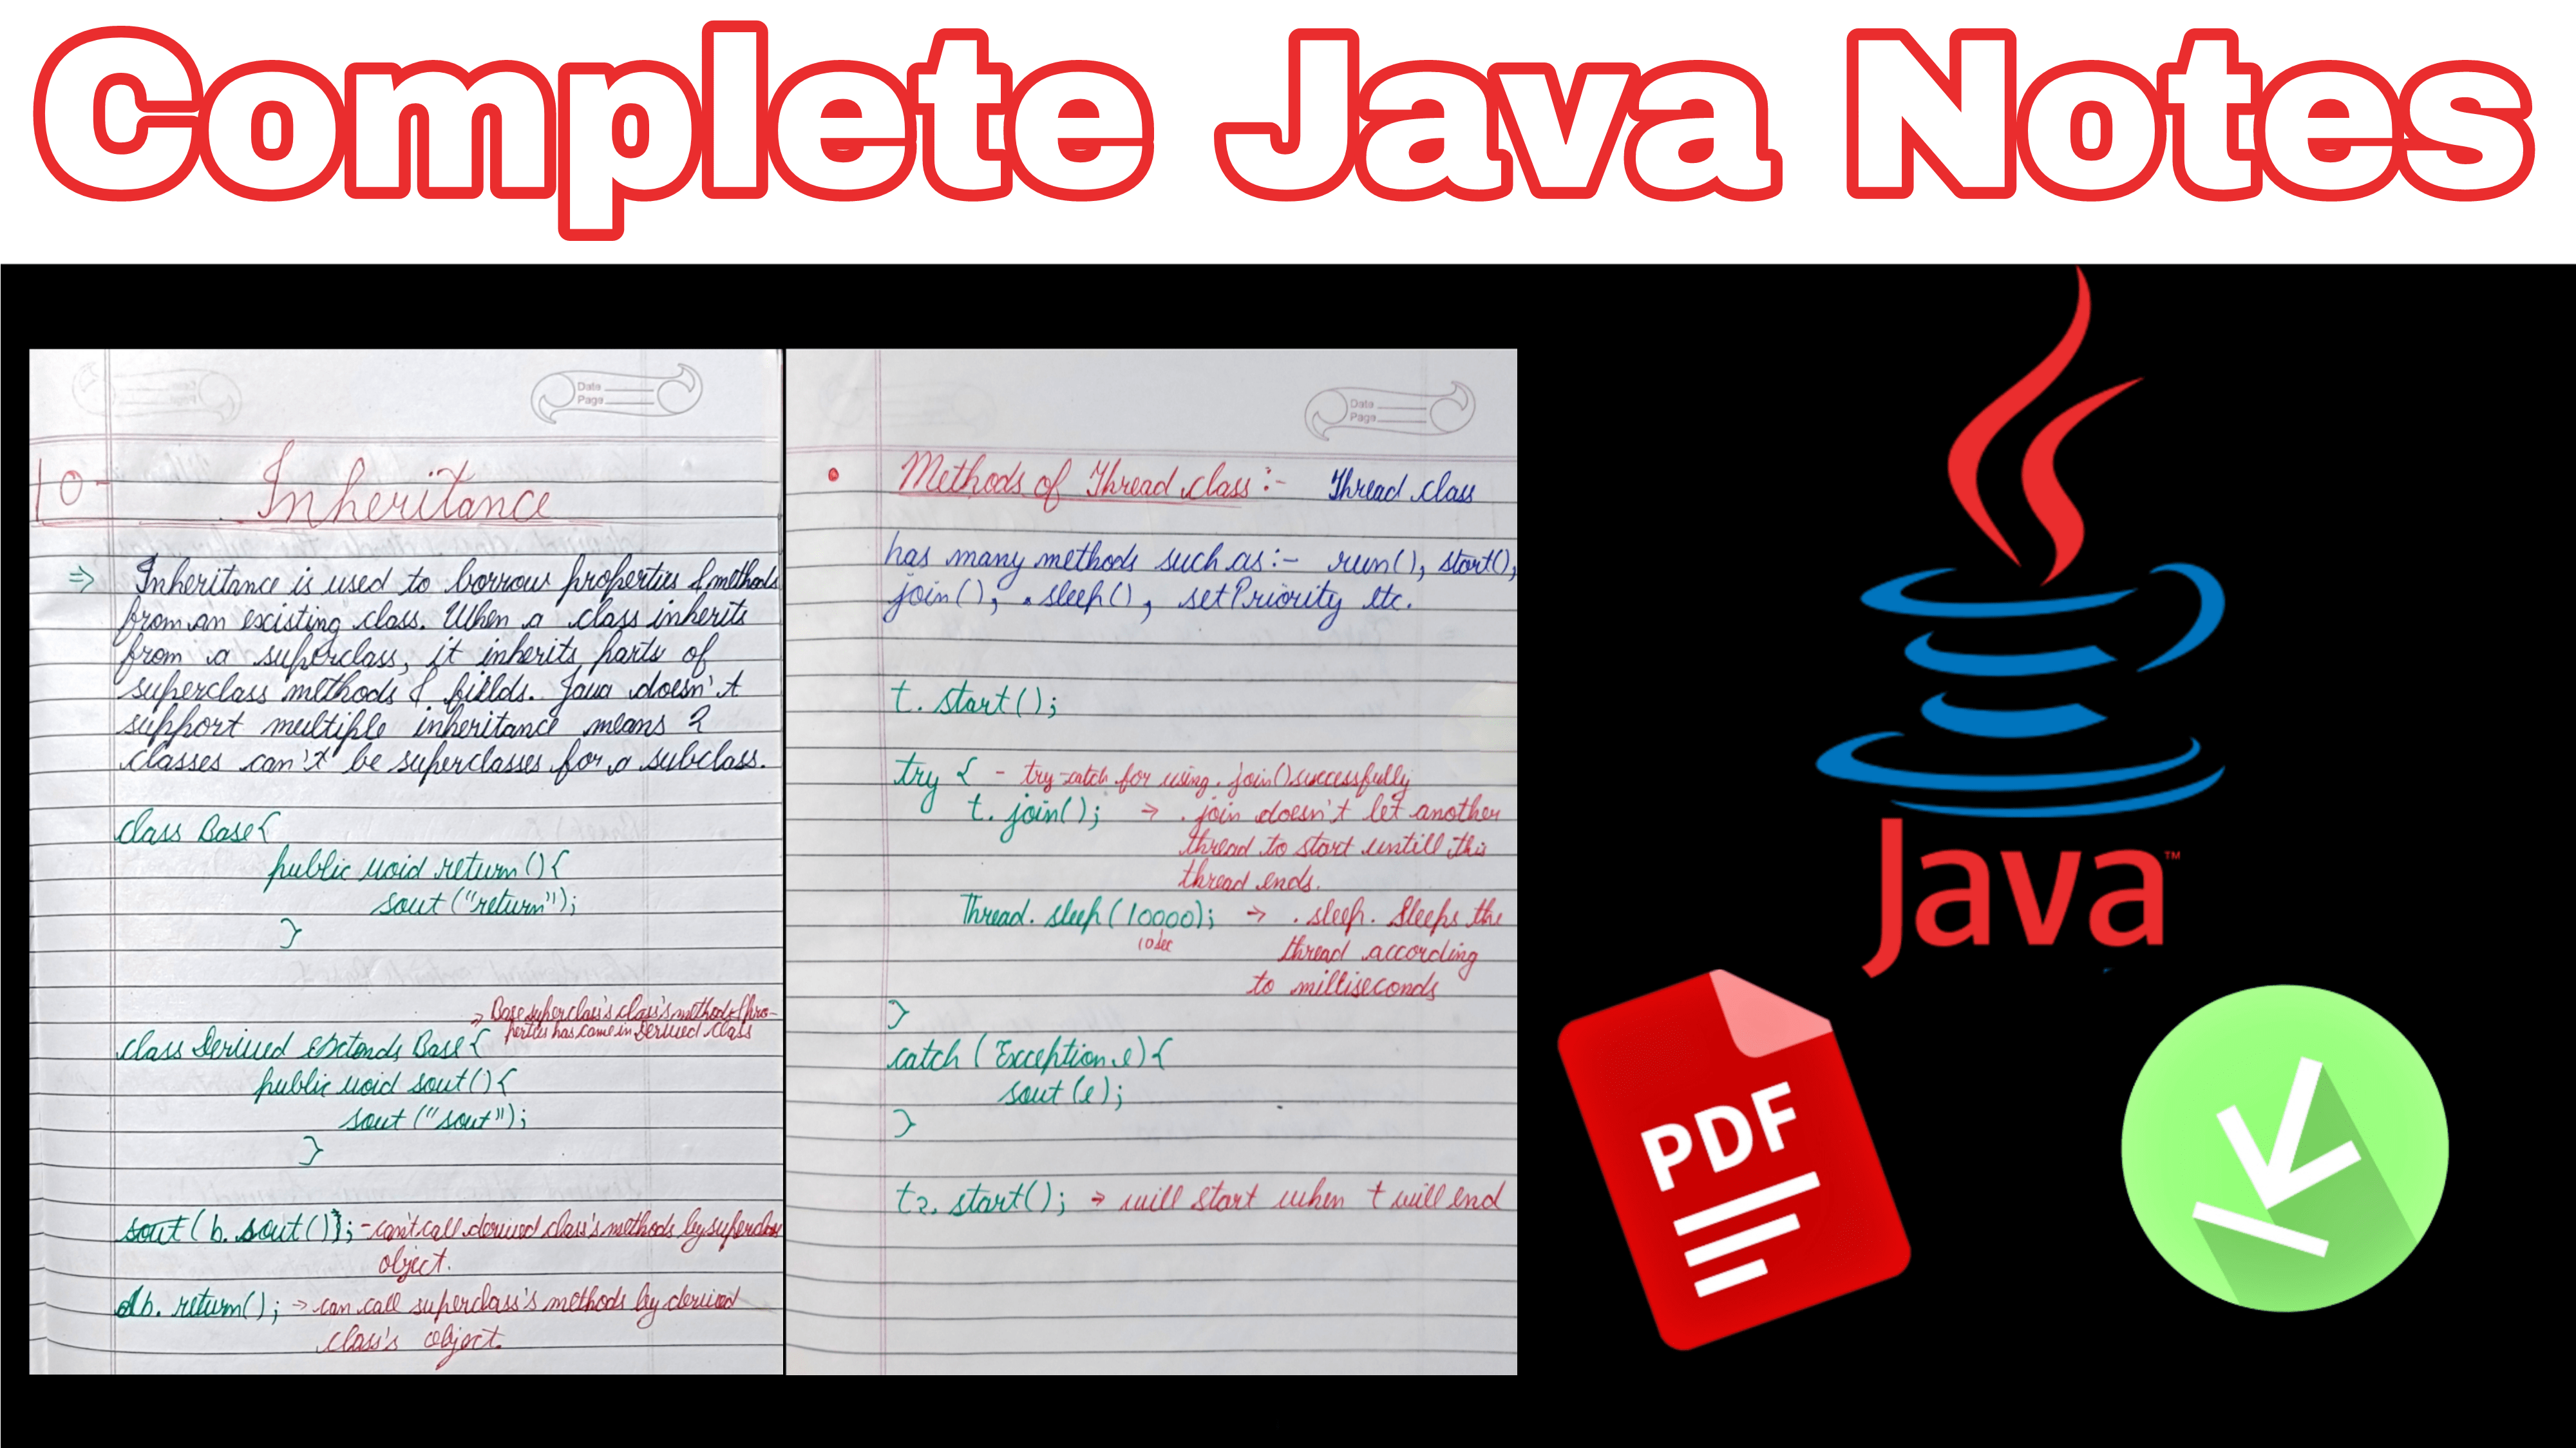 Complete Java Notes
Date
Page
10-
Inheritance
⇒ Inheritance is used to borrow properties & methods
from an existing class. When a class inherits
from a superclass, it inherits parts of
superclass methods & fields. Java doesn't
support multiple inheritance means 2
classes can't be superclasses for a subclass.
class Base{
public void return(){
sout("return");
}
→ Base superclass's class's method & pro-
perties has came in Derived class
class Derived extends Base{
public void sout(){
sout("sout");
}
sout(b.sout()); - can't call derived class's methods by superclass
object.
db.return(); → can call superclass's methods by derived
class's object.
Date
Page
• Methods of Thread class:- Thread class
has many methods such as:- run(), start(),
join(), .sleep(), setPriority etc.
t.start();
try { - try-catch for using .join() successfully
t.join(); → .join doesn't let another
thread to start untill this
thread ends.
Thread.sleep(10000); → .sleep. Sleeps the
10 sec
thread according
to milliseconds
}
catch(Exception e){
sout(e);
}
t2.start(); → will start when t will end
Java™
PDF